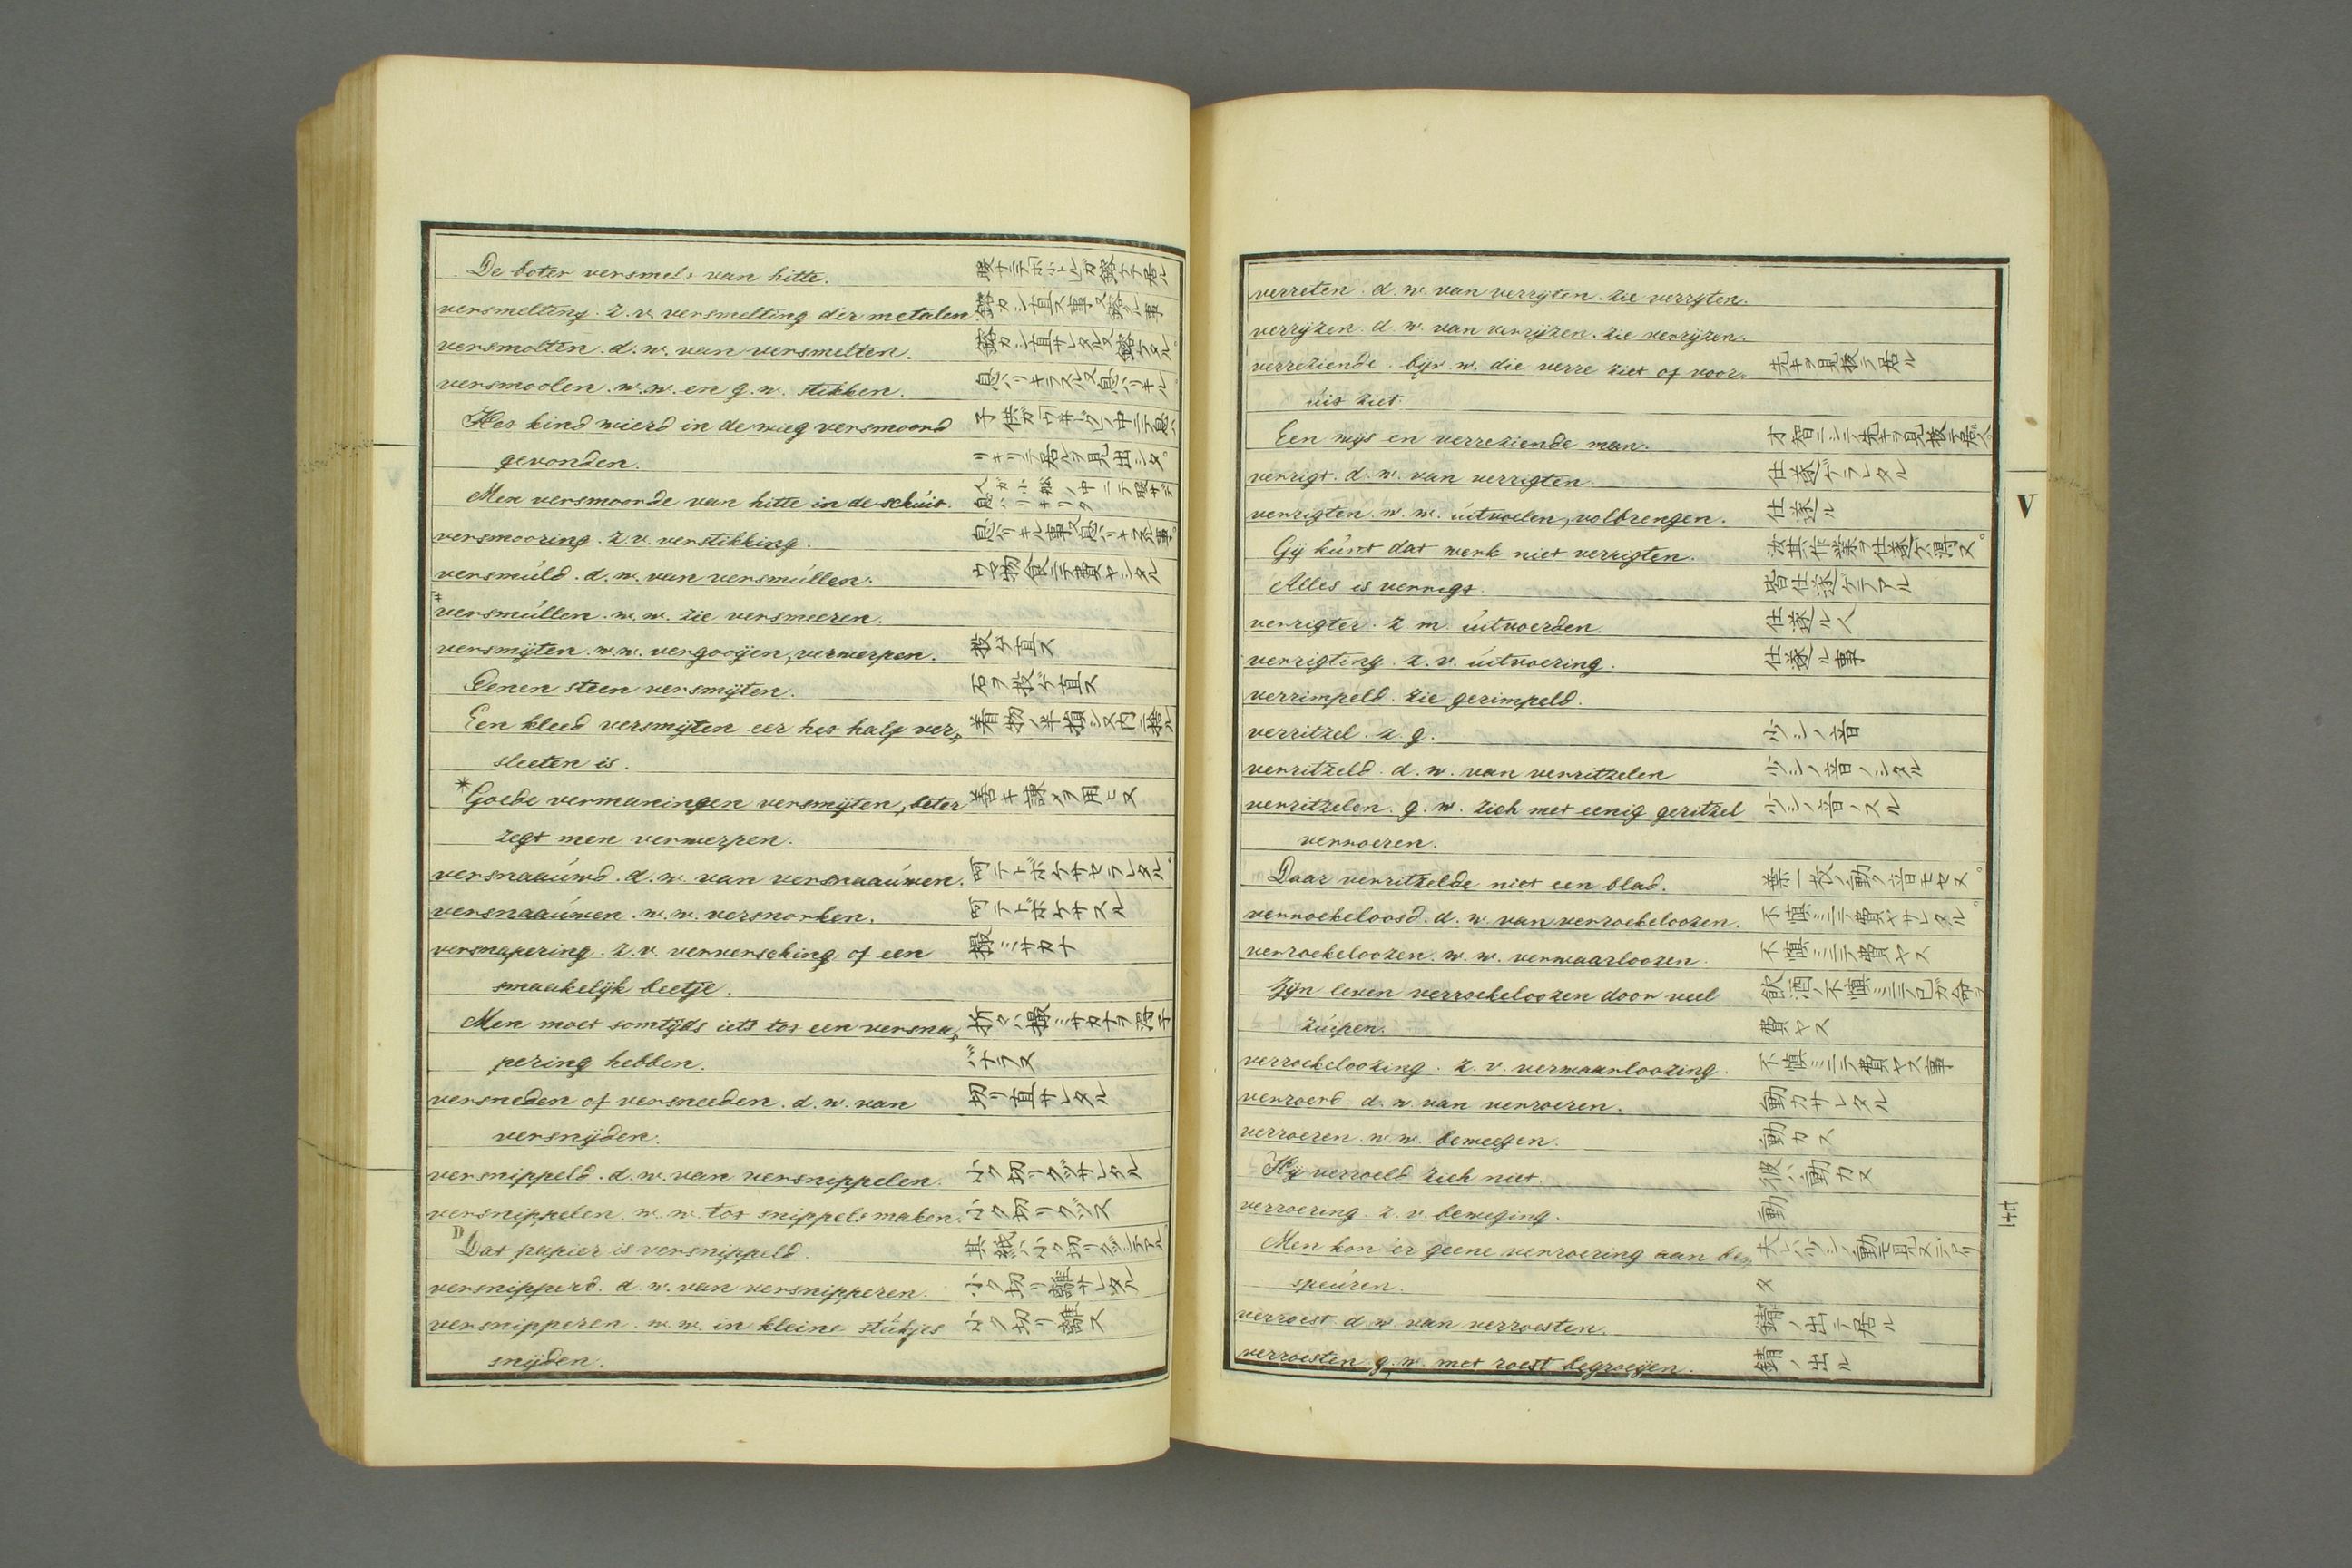 De boter versmelt van hitte. 暖ナニテボートルガ鎔ケテ居ル
versmelting. z. v. versmelting der metalen. 鎔カシ直ス事又鎔ル事
versmolten. d. w. van versmelten. 鎔カシ直サレタル又鎔ケタル
versmoolen. w. w. en g. w. stikken. 息ハリキラスル又息ハリキル
Het kind wierd in de wieg versmoord
gevonden. リキリテ居ルヲ見出シタ。
Men versmoorde van hitte in de schúit.
versmooring. z. v. verstikking.
versmúld. d. w. van versmúllen.
versmúllen. w. w. zie versmeeren.
versmijten. w. w. vergooijen, verwerpen. 投ゲ直ス
Eenen steen versmijten. 石ヲ投ゲ直ス
Een kleed versmijten eer het half ver„
sleeten is.
*Goede vermaningen versmijten, beter 善キ諫メヲ用ヒヌ
zegt men verwerpen.
versnaaúwd. d. w. van versnaaúwen.
versnaaúwen. w. w. versnorken.
versnapering. z. v. verversching of een 撮ミサカナ
smaakelijk beetje.
Men moet somtijds iets tot een versna„
pering hebben. バナラヌ
versneden of versneeden. d. w. van 切リ直サレタル
versnijden.
versnippeld. d. w. van versnippelen. 小ク切リクヅサレタル
versnippelen. w. w. tot snippels maken. 小ク切リクヅス
Dat papier is versnippeld. 其紙ハ小ク切リクヅシテアル
versnipperd. d. w. van versnipperen. 小ク切リ離サレタル
versnipperen. w. w. in kleine stúkjes 小ク切リ離ス
snijden.
verreten. d. w. van verrijten. zie verrijten.
verrijzen. d. w. van verrijzen. zie verrijzen.
verreziende. bijv. w. die verre ziet of voor„ 先キヲ見抜テ居ル
úit ziet.
Een wijs en verreziende man. 才智ニシテ先キヲ見抜テ居ル人
verrigt. d. w. van verrigten. 仕遂ゲラレタル
verrigten. w. w. úitvoelen, volbrengen. 仕遂ル
Gij kúnt dat werk niet verrigten. 汝其作業ヲ仕遂ケ得ヌ。
Alles is verrigt. 皆仕遂ゲテアル
verrigter. z. m. úitvoerden. 仕遂ル人
verrigting. z. v. úitvoering. 仕遂ル事
verrimpeld. zie gerimpeld.
verritzel. z. g. 少シノ音
verritzeld. d. w. van verritzelen 少シノ音ノシタル
verritzelen. g. w. zich met eenig geritzel 少シノ音ノスル
verroeren.
Daar verritzelde niet een blad. 葉一枚ノ動ク音モセヌ。
verroekeloosd. d. w. van verroekeloozen. 不慎ミニテ費ヤサレタル
verroekeloozen. w. w. verwaarloozen. 不慎ミニテ費ヤス
Zijn leven verroekeloozen door veel 飲酒ノ不慎ミニテ己ガ命ヲ
zúipen. 費ヤス
verroekeloozing. z. v. verwaarloozing. 不慎ミニテ費ヤス事
verroerd. d. w. van verroeren. 動カサレタル
verroeren. w. w. beweegen. 動カス
Hij verroeld zich niet. 彼ハ動カヌ
verroering. z. v. beweging. 動
Men kon er geene verroering aan be„
speúren. タ
verroest. d. w. van verroesten. 錆ノ出テ居ル
verroesten. g. w. met roest begroeijen. 錆ノ出ル
V